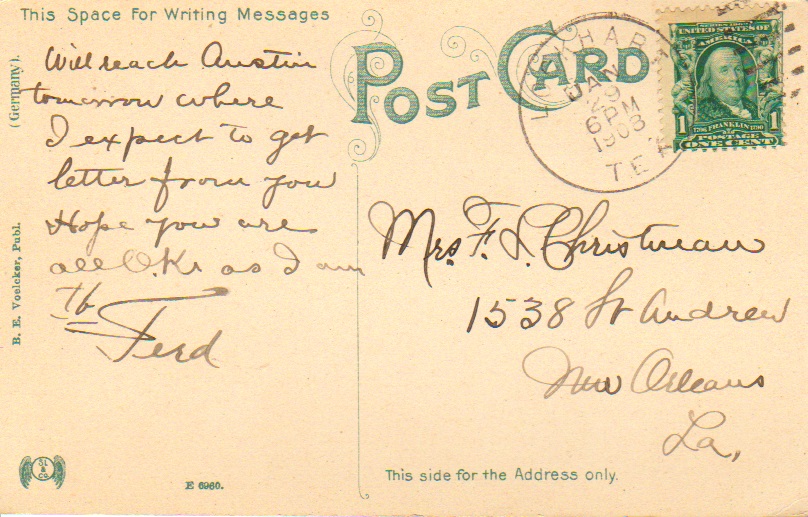 This Space For Writing Messages
Will reach Austin
tomorrow where
I expect to get
letter from you
Hope you are
all O.K. as I am
Ferd
(Germany).
B. E. Voelcker, Publ.
SL
&
CO
E 6960.
POST CARD
LOCKHART
JAN
29
6 PM
1908
TEX
UNITED STATES OF
AMERICA
1 1
FRANKLIN
POSTAGE
ONE CENT
Mrs. F. L. Christman
1538 St Andrew
New Orleans
La,
This side for the Address only.